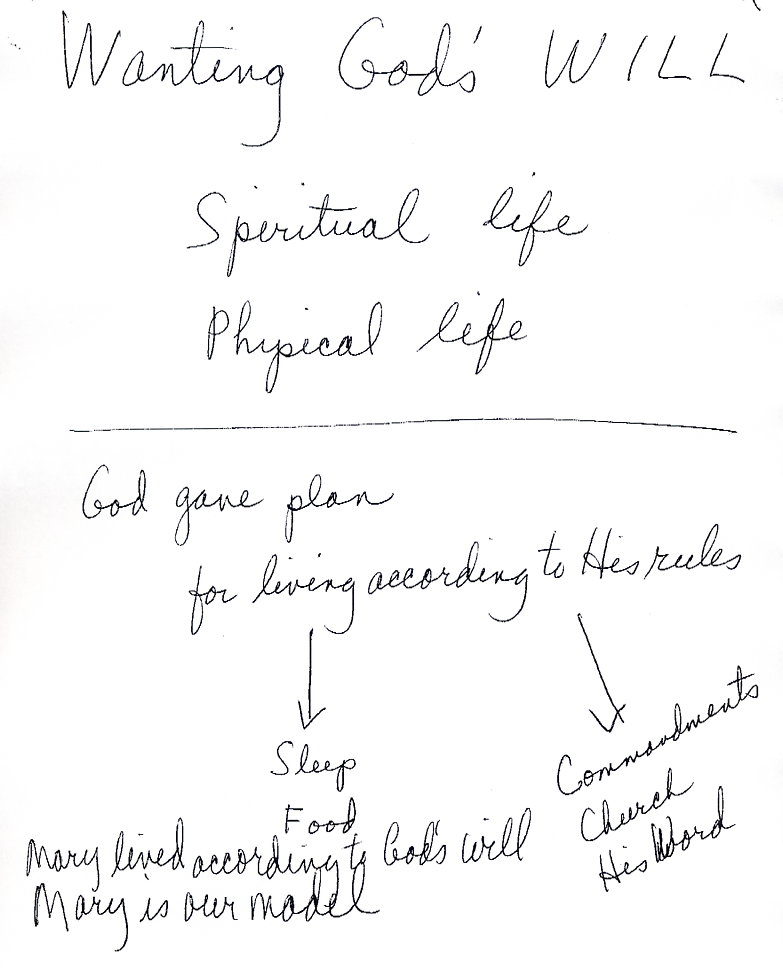 Wanting God's WILL
Spiritual life
Physical life
God gave plan
for living according to His rules
Sleep
Food
Commandments
Church
His Word
Mary lived according to God's will
Mary is our model